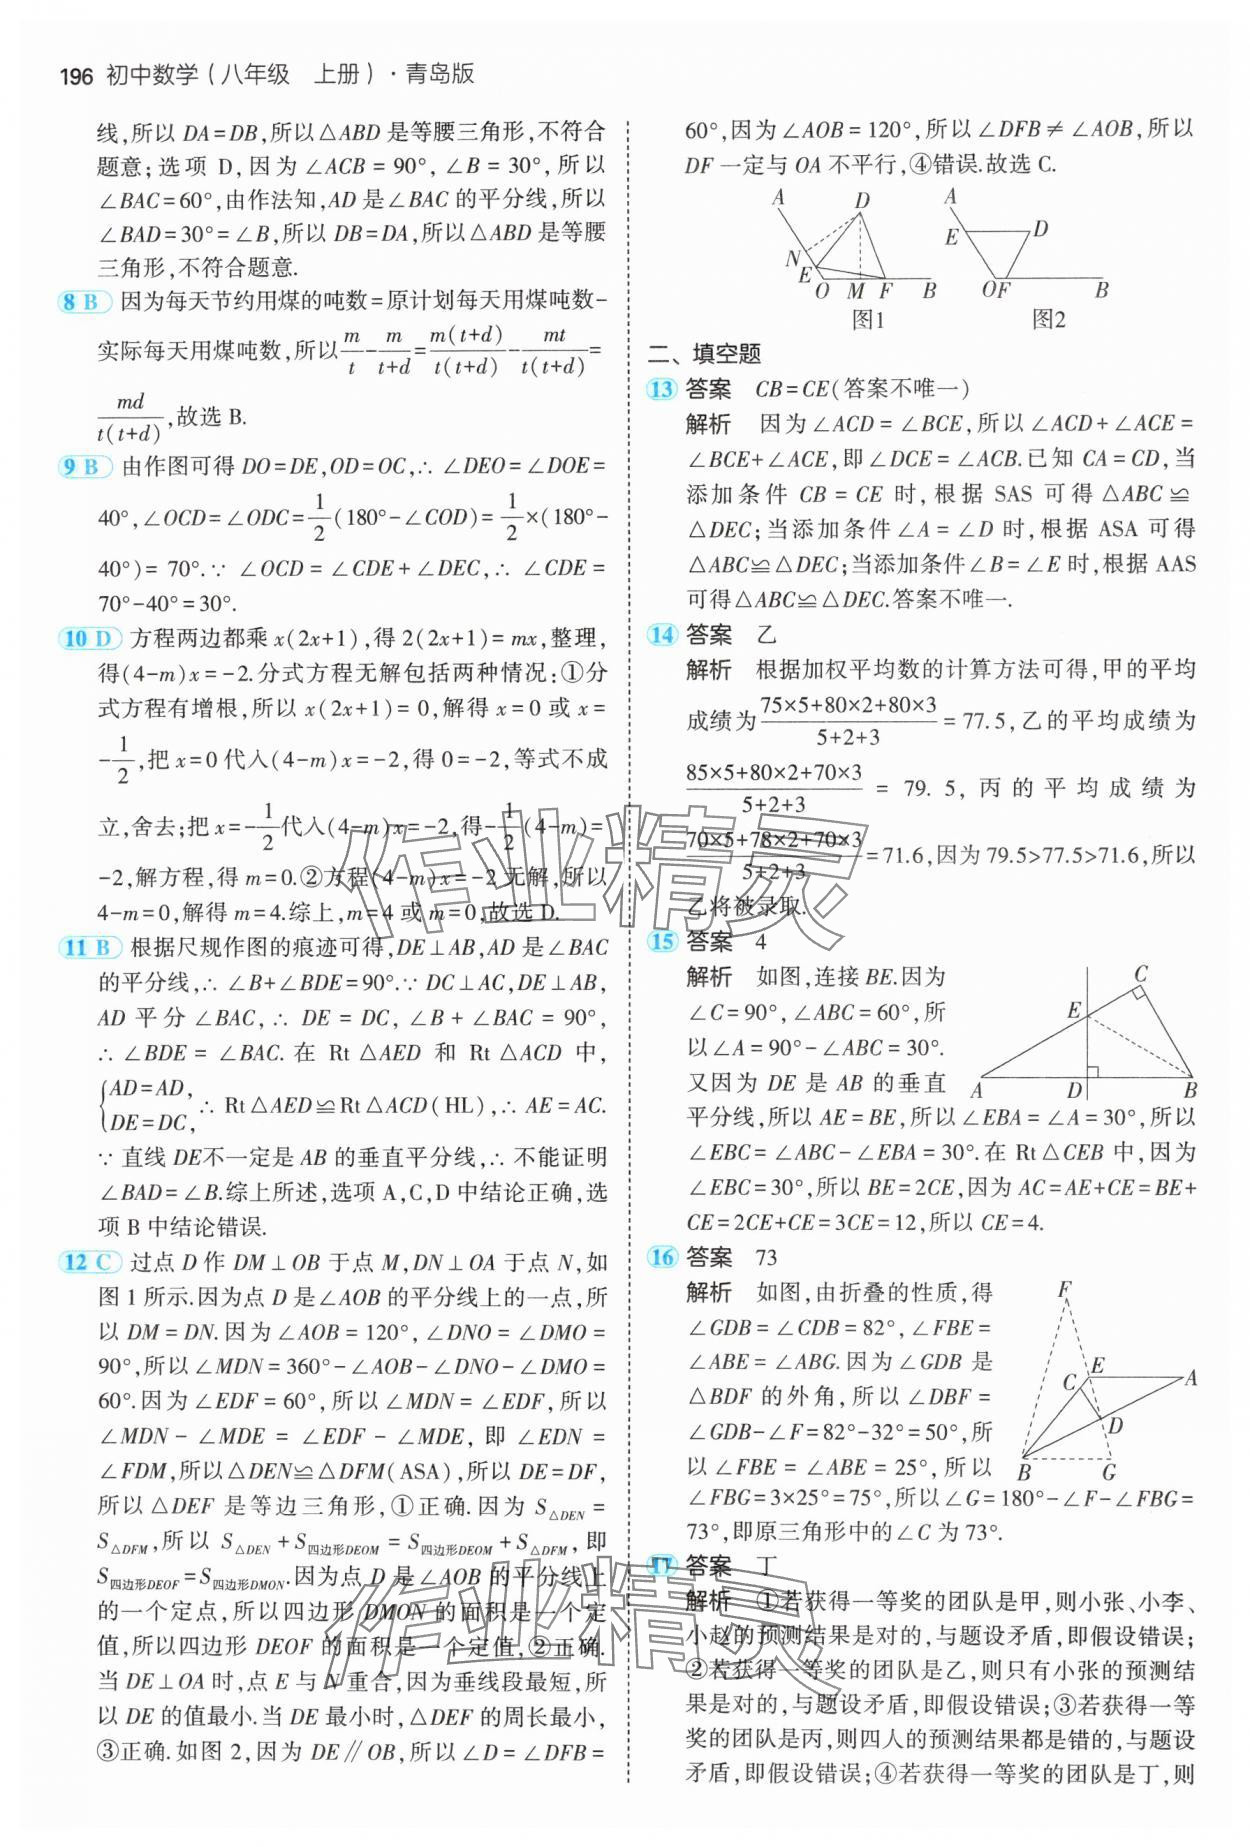 196 初中数学(八年级 上册)·青岛版
线,所以 DA=DB,所以△ABD 是等腰三角形,不符合
题意;选项 D,因为∠ACB=90°,∠B=30°,所以
∠BAC=60°,由作法知,AD 是∠BAC 的平分线,所以
∠BAD=30°=∠B,所以 DB=DA,所以△ABD 是等腰
三角形,不符合题意.
8 B 因为每天节约用煤的吨数=原计划每天用煤吨数-
实际每天用煤吨数,所以 m/t - m/(t+d) = m(t+d)/t(t+d) - mt/t(t+d) =
md/t(t+d),故选 B.
9 B 由作图可得 DO=DE,OD=OC,∴∠DEO=∠DOE=
40°,∠OCD=∠ODC=1/2(180°-∠COD)=1/2×(180°-
40°)=70°.∵∠OCD=∠CDE+∠DEC,∴∠CDE=
70°-40°=30°.
10 D 方程两边都乘 x(2x+1),得 2(2x+1)=mx,整理,
得(4-m)x=-2.分式方程无解包括两种情况:①分
式方程有增根,所以 x(2x+1)=0,解得 x=0 或 x=
-1/2,把 x=0 代入(4-m)x=-2,得 0=-2,等式不成
立,舍去;把 x=-1/2代入(4-m)x=-2,得-1/2(4-m)=
-2,解方程,得 m=0.②方程(4-m)x=-2 无解,所以
4-m=0,解得 m=4.综上,m=4 或 m=0,故选 D.
11 B 根据尺规作图的痕迹可得,DE⊥AB,AD 是∠BAC
的平分线,∴∠B+∠BDE=90°.∵DC⊥AC,DE⊥AB,
AD 平分∠BAC,∴DE=DC,∠B+∠BAC=90°,
∴∠BDE=∠BAC.在 Rt△AED 和 Rt△ACD 中,
{AD=AD,
DE=DC, ∴Rt△AED≌Rt△ACD(HL),∴AE=AC.
∵直线 DE不一定是 AB 的垂直平分线,∴不能证明
∠BAD=∠B.综上所述,选项 A,C,D 中结论正确,选
项 B 中结论错误.
12 C 过点 D 作 DM⊥OB 于点 M,DN⊥OA 于点 N,如
图 1 所示.因为点 D 是∠AOB 的平分线上的一点,所
以 DM=DN.因为∠AOB=120°,∠DNO=∠DMO=
90°,所以∠MDN=360°-∠AOB-∠DNO-∠DMO=
60°.因为∠EDF=60°,所以∠MDN=∠EDF,所以
∠MDN-∠MDE=∠EDF-∠MDE,即∠EDN=
∠FDM,所以△DEN≌△DFM(ASA),所以 DE=DF,
所以△DEF 是等边三角形,①正确.因为 S△DEN=
S△DFM,所以 S△DEN+S四边形DEOM=S四边形DEOM+S△DFM,即
S四边形DEOF=S四边形DMON.因为点 D 是∠AOB 的平分线上
的一个定点,所以四边形 DMON 的面积是一个定
值,所以四边形 DEOF 的面积是一个定值,②正确.
当 DE⊥OA 时,点 E 与 N 重合,因为垂线段最短,所
以 DE 的值最小.当 DE 最小时,△DEF 的周长最小,
③正确.如图 2,因为 DE∥OB,所以∠D=∠DFB=
60°,因为∠AOB=120°,所以∠DFB≠∠AOB,所以
DF 一定与 OA 不平行,④错误.故选 C.
A D N E O M F B
图1
A E D O F B
图2
二、填空题
13 答案 CB=CE(答案不唯一)
解析 因为∠ACD=∠BCE,所以∠ACD+∠ACE=
∠BCE+∠ACE,即∠DCE=∠ACB.已知 CA=CD,当
添加条件 CB=CE 时,根据 SAS 可得△ABC≌
△DEC;当添加条件∠A=∠D 时,根据 ASA 可得
△ABC≌△DEC;当添加条件∠B=∠E 时,根据 AAS
可得△ABC≌△DEC.答案不唯一.
14 答案 乙
解析 根据加权平均数的计算方法可得,甲的平均
成绩为(75×5+80×2+80×3)/(5+2+3)=77.5,乙的平均成绩为
(85×5+80×2+70×3)/(5+2+3)=79.5,丙的平均成绩为
(70×5+78×2+70×3)/(5+2+3)=71.6,因为79.5>77.5>71.6,所以
乙将被录取.
15 答案 4
解析 如图,连接 BE.因为
∠C=90°,∠ABC=60°,所
以∠A=90°-∠ABC=30°.
又因为 DE 是 AB 的垂直
C E A D B
平分线,所以 AE=BE,所以∠EBA=∠A=30°,所以
∠EBC=∠ABC-∠EBA=30°.在 Rt△CEB 中,因为
∠EBC=30°,所以 BE=2CE,因为 AC=AE+CE=BE+
CE=2CE+CE=3CE=12,所以 CE=4.
16 答案 73
解析 如图,由折叠的性质,得
∠GDB=∠CDB=82°,∠FBE=
∠ABE=∠ABG.因为∠GDB 是
△BDF 的外角,所以∠DBF=
∠GDB-∠F=82°-32°=50°,所
以∠FBE=∠ABE=25°,所以
F E C A D B G
∠FBG=3×25°=75°,所以∠G=180°-∠F-∠FBG=
73°,即原三角形中的∠C 为 73°.
17 答案 丁
解析 ①若获得一等奖的团队是甲,则小张、小李、
小赵的预测结果是对的,与题设矛盾,即假设错误;
②若获得一等奖的团队是乙,则只有小张的预测结
果是对的,与题设矛盾,即假设错误;③若获得一等
奖的团队是丙,则四人的预测结果都是错的,与题设
矛盾,即假设错误;④若获得一等奖的团队是丁,则
作业精灵
作业精灵